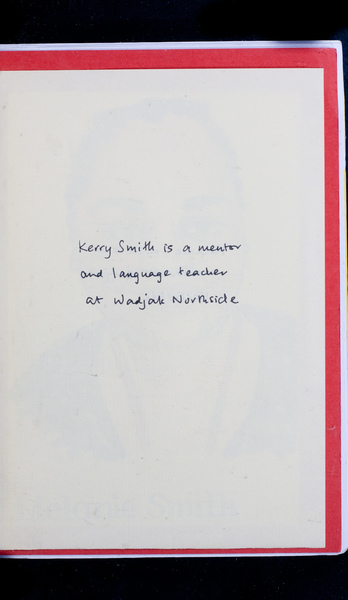 Kerry Smith is a mentor
and language teacher
at Wadjak Northside